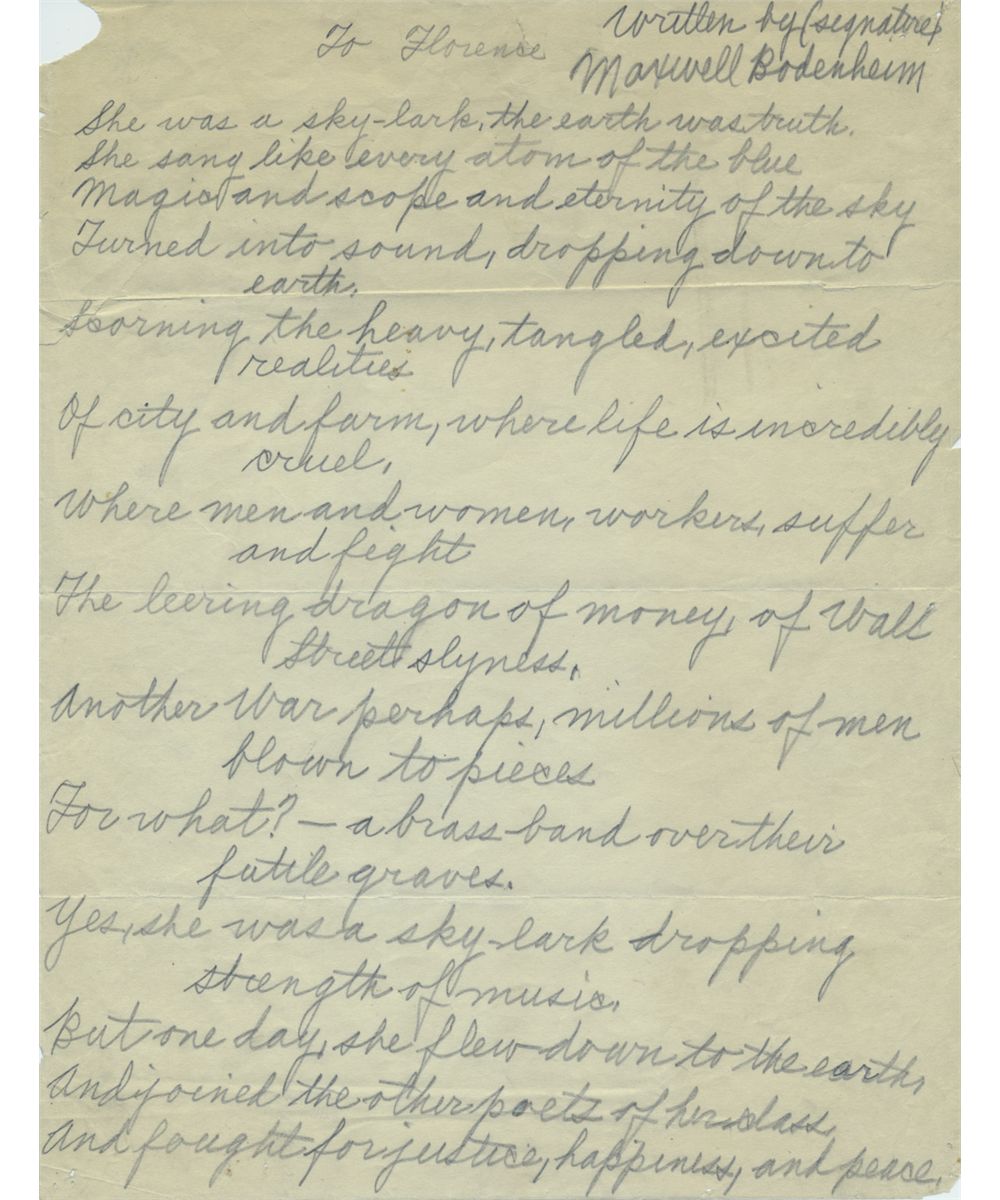 To Florence
Written by (signature)
Maxwell Bodenheim
She was a sky-lark, the earth was truth.
She sang like every atom of the blue
Magic and scope and eternity of the sky
Turned into sound, dropping down to
earth.
Scorning the heavy, tangled, excited
realities
Of city and farm, where life is incredibly
cruel,
Where men and women, workers, suffer
and fight
The leering dragon of money, of Wall
Street slyness,
Another War perhaps, millions of men
blown to pieces
For what? — a brass-band over their
futile graves.
Yes, she was a sky-lark dropping
strength of music.
But one day, she flew down to the earth,
And joined the other poets of her class,
And fought for justice, happiness, and peace.